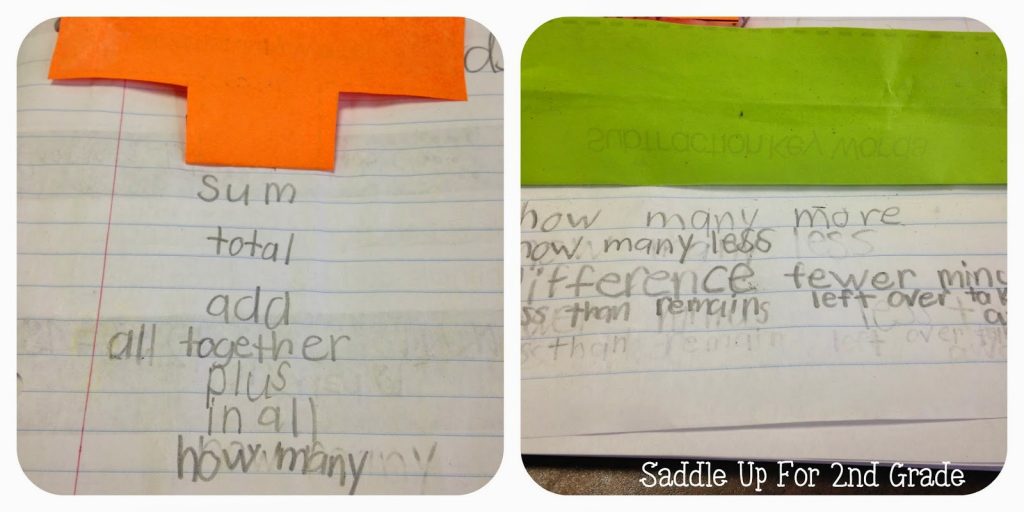 sum
total
add
all together
plus
in all
how many
Subtraction Key Words
how many more
how many less
difference fewer
than remains left over
Saddle Up For 2nd Grade